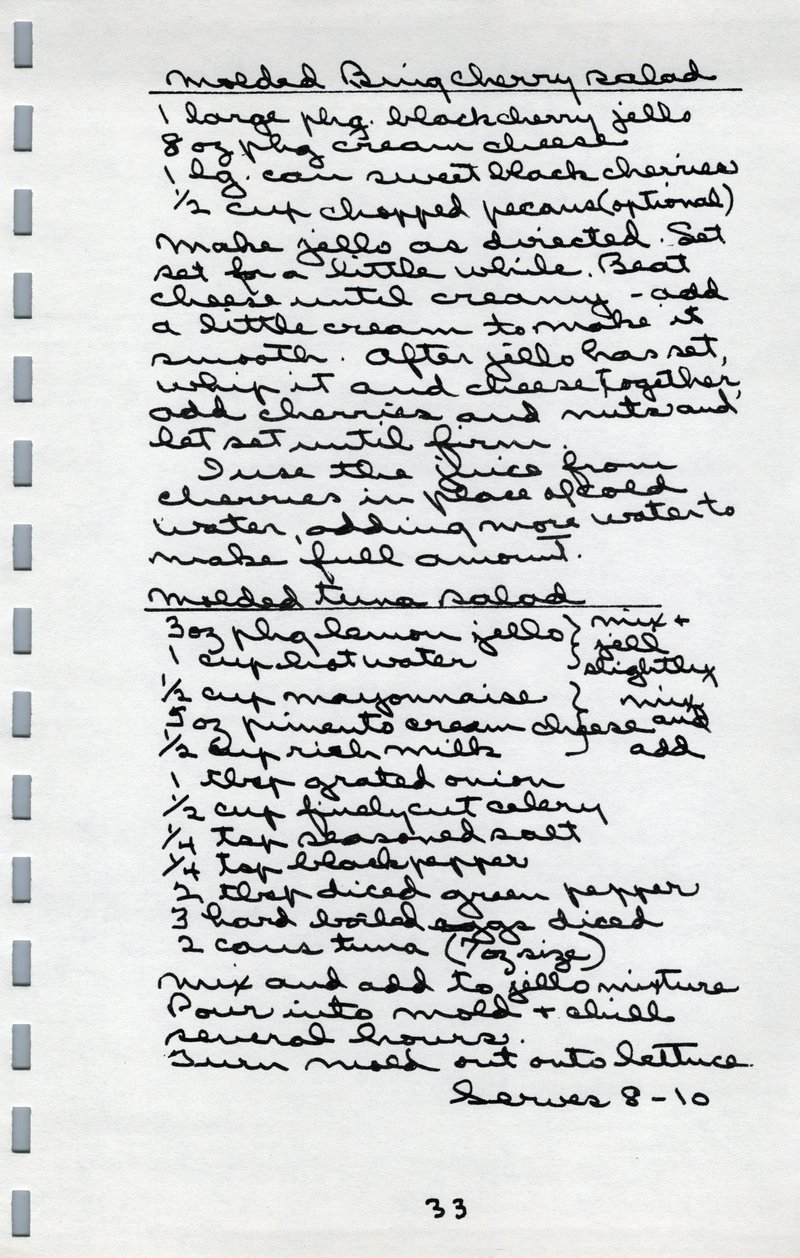 Molded Bing cherry salad
1 large pkg. black cherry jello
8 oz pkg cream cheese
1 lg. can sweet black cherries
1/2 cup chopped pecans (optional)
Make jello as directed. Set
set for a little while. Beat
cheese until creamy - add
a little cream to make it
smooth. After jello has set,
whip it and cheese together,
add cherries and nuts and
let set until firm.
I use the juice from
cherries in place of cold
water, adding more water to
make full amount.
Molded tuna salad
3 oz pkg lemon jello } mix +
1 cup hot water } jell
slightly
1/2 cup mayonnaise } mix
5 oz pimento cream cheese and
1/2 cup rich milk } add
1 tbsp grated onion
1/2 cup finely cut celery
1/4 tsp seasoned salt
1/4 tsp black pepper
2 tbsp diced green pepper
3 hard boiled eggs diced
2 cans tuna (7 oz size)
Mix and add to jello mixture
Pour into mold + chill
several hours.
Turn mold out onto lettuce.
Serves 8-10
33